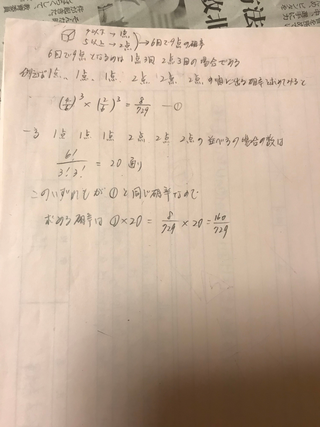 4以下 → 1点
5以上 → 2点 → 6回で9点の確率
6回で9点となるのは 1点3回 2点3回の場合である
例えば1点、1点 1点 2点 2点 2点 の順に出る確率は
(4/6)³ × (2/6)³ = 8/729 ―①
一方 1点 1点 1点 2点 2点 2点の並べ方の場合の数は
6!/3!3! = 20通り
このいずれもが①と同じ確率なので
求める確率は ①×20 = 8/729 × 20 = 160/729